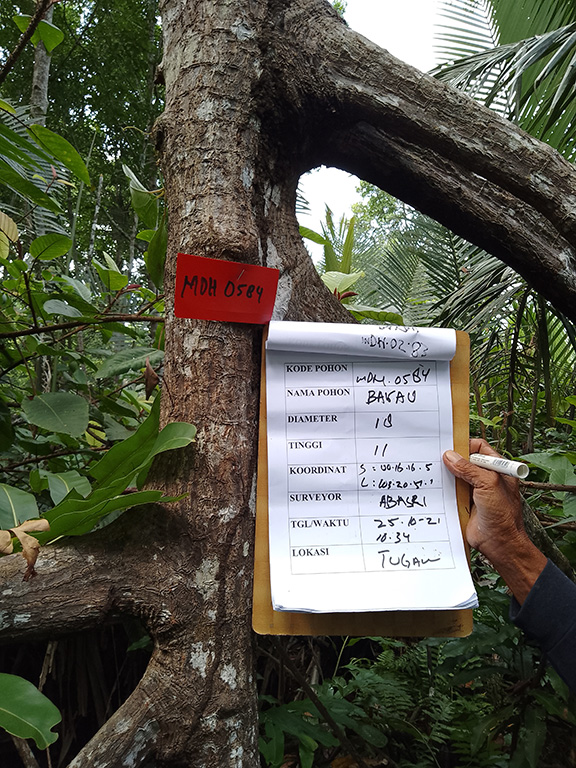 MDH 0584
MDH.02.83
KODE POHON MDH.0584
NAMA POHON BAKAU
DIAMETER 18
TINGGI 11
KOORDINAT S : 00.16.16.5
L : 103.20.51.1
SURVEYOR ABASRI
TGL/WAKTU 25-10-21
10.34
LOKASI TUGAU